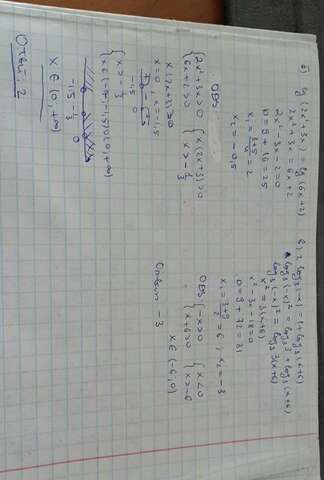 б) lg (2x²+3x) = lg (6x+2)
2x²+3x = 6x+2
2x²-3x-2=0
D=9+16=25
x₁ = (3+5)/4 = 2
x₂ = -0,5
ОДЗ
{2x²+3x>0 {x(2x+3)>0
{6x+2>0 {x>-1/3
x(2x+3)>0
x=0 x=-1,5
-1,5 0
{x>-1/3
{x∈(-∞;-1,5)∪(0;+∞)
-1,5 -1/3 0
x ∈ (0;+∞)
Ответ: 2
в) 2 log₃(-x) = 1+log₃(x+6)
log₃(-x)² = log₃3 + log₃(x+6)
log₃(-x)² = log₃3(x+6)
x² = 3(x+6)
x²-3x-18=0
D=9+72=81
x₁ = (3+9)/2 = 6, x₂=-3
ОДЗ {-x>0 {x<0
{x+6>0 {x>-6
x∈(-6;0)
Ответ -3